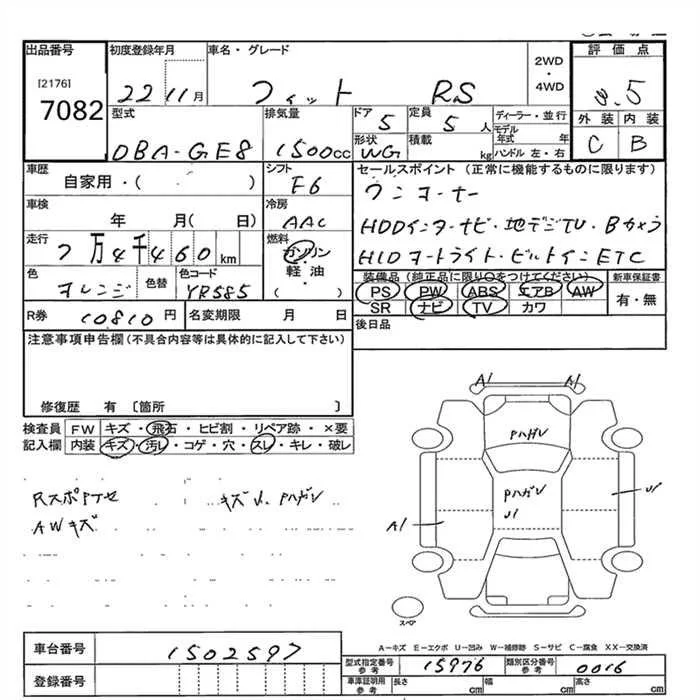 出品番号 初度登録年月 車名・グレード 2WD・4WD 評価点
[2176]
7082 22 11月 フィット RS 5
外装 内装
C B
型式 排気量 ドア 定員 ディーラー・並行
DBA-GE8 1500cc 5 5人 モデル年式 年
形状 積載 ハンドル 左・右
WG kg
車歴 シフト セールスポイント (正常に機能するものに限ります)
自家用・( ) F6 ワンオーナー
車検 冷房 HDDインターナビ・地デジTV・Bカメラ
年 月( 日) AAC HIDヘッドライト・ビルトインETC
走行 燃料
7万4千460km ガソリン・軽油・( )
色 色替 色コード 装備品 (純正品に限り○をつけてください) 新車保証書
オレンジ YR585 PS PW ABS エアB AW 有・無
SR ナビ TV カワ
R券 10810円 名変期限 月 日 後日品
注意事項申告欄(不具合内容等は具体的に記入して下さい)
修復歴 有 〔箇所 〕
検査員 FW キズ・飛石・ヒビ割・リペア跡・×要
記入欄 内装 キズ・汚レ・コゲ・穴・スレ・キレ・破レ
A1 A1
Pハガレ
RスポPTセ キズU、Pハガレ
AWキズ
PハガレU1
U1
A1
スペア
A-キズ E-エクボ U-凹み W-補修跡 S-サビ C-腐食 XX-交換済
車台番号 1502597
型式指定番号 参考 15976 類別区分番号 参考 0016
登録番号
車庫証明用 参考 長さ cm 幅 cm 高さ cm